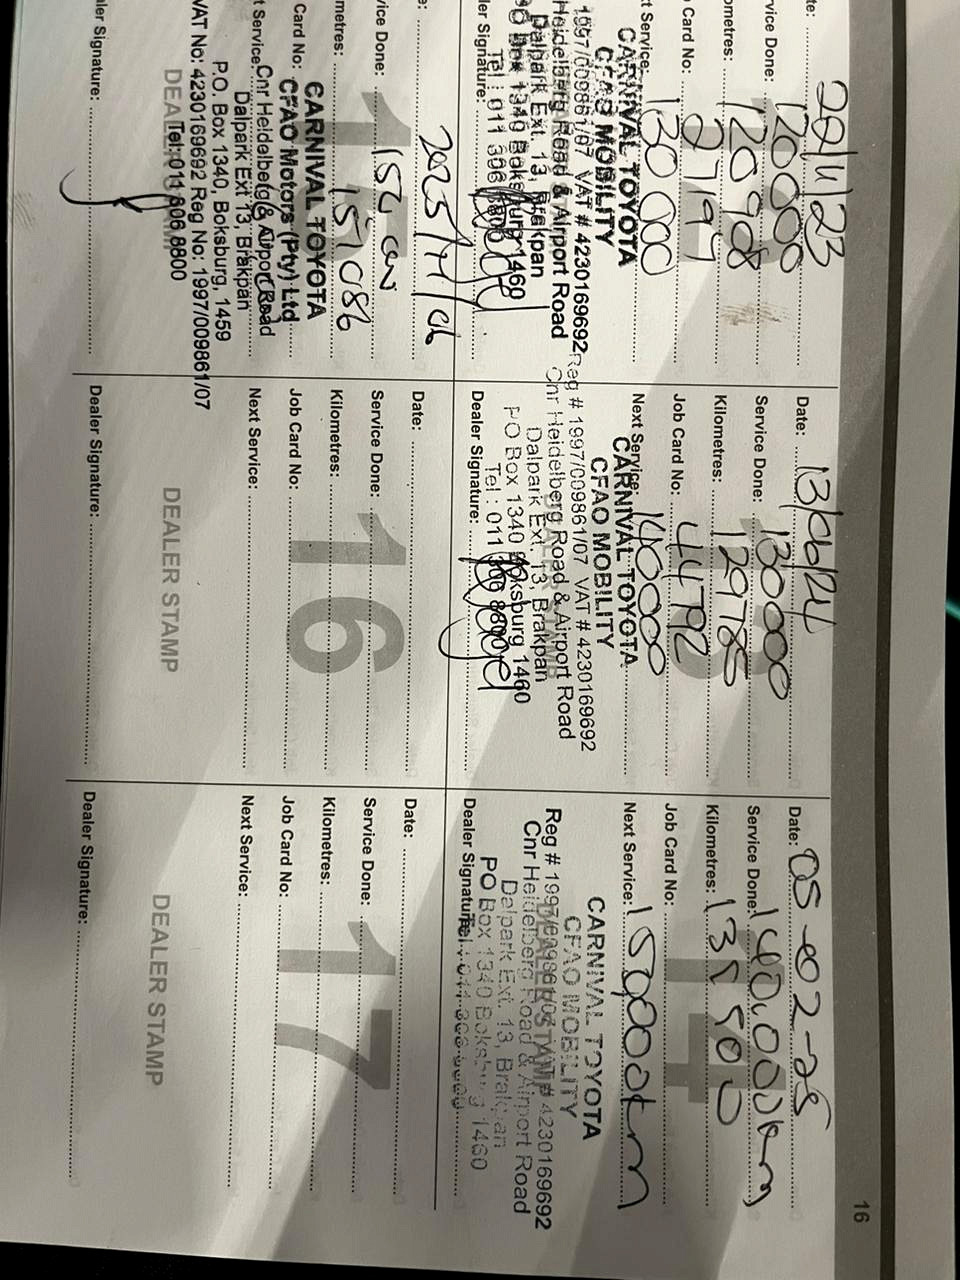 16
te:
22/11/23
vice Done:
120000
ometres:
120998
Card No:
t Service:
130 000
CARNIVAL TOYOTA
CFAO MOBILITY
1997/009861/07 VAT # 4230169692
Heidelberg Road & Airport Road
Dalpark Ext. 13, Brakpan
PO Box 1340 Boksburg 1460
Tel : 011 306 8800
ler Signature:
Date: 13/06/24
Service Done: 130000
Kilometres: 129785
Job Card No: 44792
Next Service: 140000
CARNIVAL TOYOTA
CFAO MOBILITY
Reg # 1997/009861/07 VAT # 4230169692
Cnr Heidelberg Road & Airport Road
Dalpark Ext. 13, Brakpan
PO Box 1340 Boksburg 1460
Tel : 011 306 8800
Dealer Signature:
14
Date: 05-02-25
Service Done: 140,000km
Kilometres:
Job Card No:
Next Service: 150,000km
CARNIVAL TOYOTA
CFAO MOBILITY
DEALER STAMP
Reg # 1997/009861/07 VAT # 4230169692
Cnr Heidelberg Road & Airport Road
Dalpark Ext. 13, Brakpan
PO Box 1340 Boksburg 1460
Tel : 011 306 8800
Dealer Signature:
e:
2025/11/06
vice Done:
metres: 157086
Card No:
t Service:
CARNIVAL TOYOTA
CFAO Motors (Pty) Ltd
Cnr Heidelberg & Airport Road
Dalpark Ext 13, Brakpan
P.O. Box 1340, Boksburg, 1459
VAT No: 4230169692 Reg No: 1997/009861/07
Tel: 011 306 8800
DEALER STAMP
ler Signature:
16
Date:
Service Done:
Kilometres:
Job Card No:
Next Service:
DEALER STAMP
Dealer Signature:
17
Date:
Service Done:
Kilometres:
Job Card No:
Next Service:
DEALER STAMP
Dealer Signature: